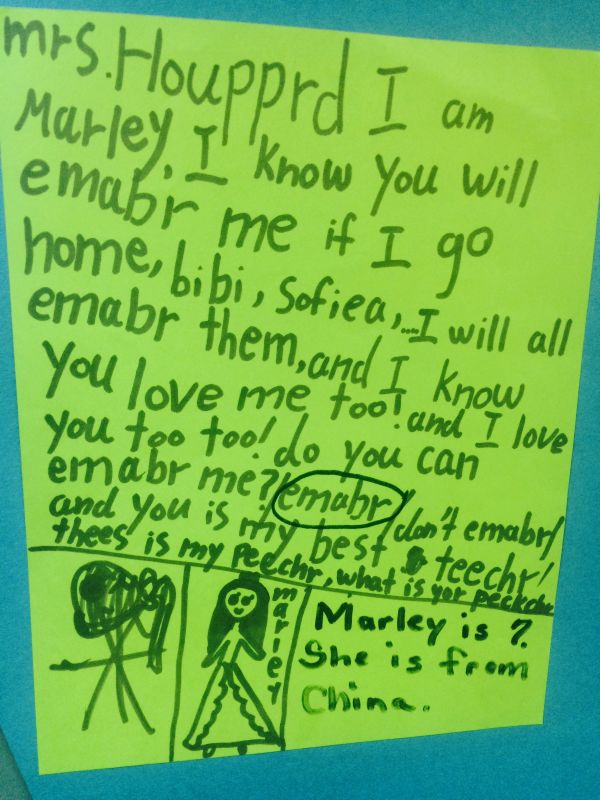 mrs. Houpprd I am
Marley, I know you will
emabr me if I go
home, bibi, Sofiea,....I will all
emabr them, and I know
you love me too! and I love
you too too! do you can
emabr me? emabr / don't emabr /
and you is my best teechr!
thees is my peechr, what is yor
marley
Marley is 7.
She is from
China.